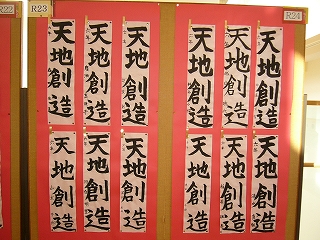 R22
R23
R24
天地創造
天地創造
天地創造
天地創造
天地創造
天地創造
天地創造
天地創造
天地創造
天地創造
天地創造
天地創造